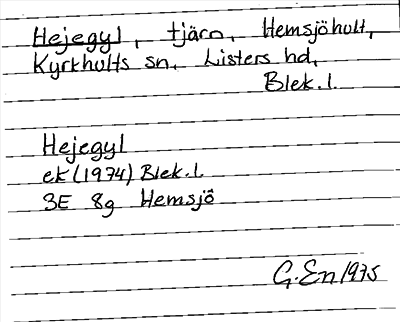 Hejegyl, tjärn, Hemsjöhult,
Kyrkhults sn, Listers hd,
Blek. l.
Hejegyl
ek (1974) Blek. l.
3E 8g Hemsjö
G. En 1975